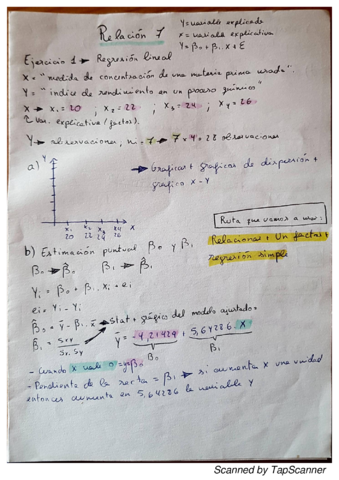 Relación 7
Y = variable explicada
X = variable explicativa
Y = β₀ + β₁·X + E
Ejercicio 1 → Regresión lineal
X = "medida de concentración de una materia prima usada".
Y = "índice de rendimiento en un proceso químico"
X → x₁ = 20 ; x₂ = 22 ; x₃ = 24 ; x₄ = 26
var. explicativa (factor).
Y → observaciones, n = 7 → 7 × 4 = 28 observaciones
a)
Y
→ Gráficas + gráficos de dispersión +
gráfico X-Y
x₁ x₂ x₃ x₄ X
20 22 24
Ruta que vamos a usar:
b) Estimación puntual β₀ y β₁
Relacionar + Un factor +
regresión simple
β₀ → β̂₀ β₁ → β̂₁
Yᵢ = β̂₀ + β̂₁·xᵢ + eᵢ
eᵢ = Yᵢ - Ŷᵢ
β̂₀ = ȳ - β̂₁·x̄ → Stat + gráfico del modelo ajustado =
ŷ = -4,21429 + 5,64286·X
β₀ β₁
- Cuando X vale 0
- Pendiente de la recta = β₁ → si aumenta X una unidad
entonces aumenta en 5,64286 la variable Y
Scanned by TapScanner